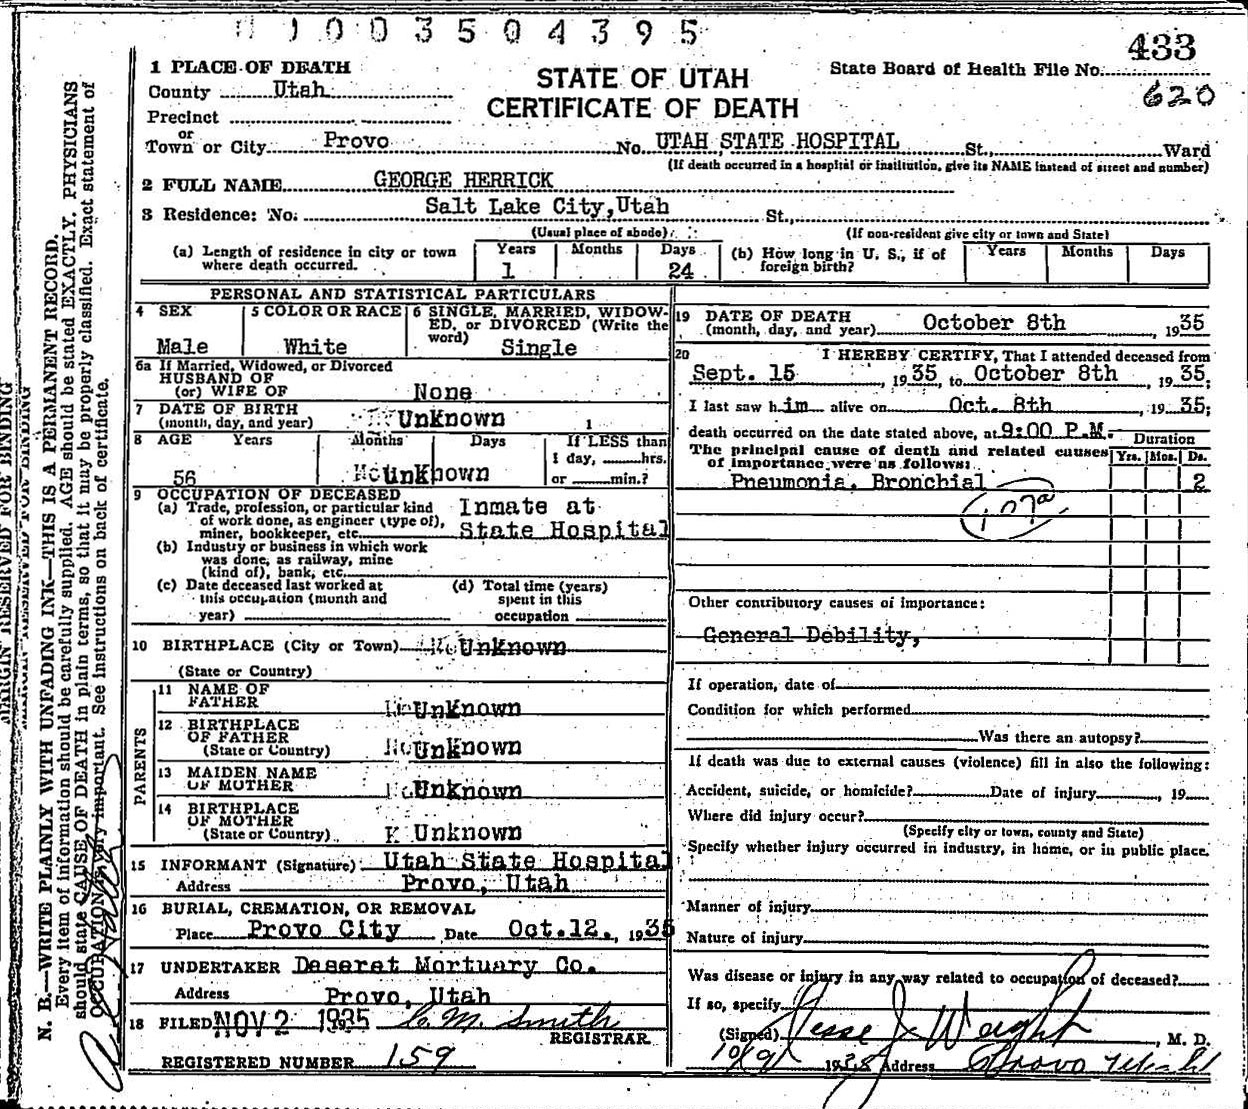 1003504395
433
1 PLACE OF DEATH
STATE OF UTAH
State Board of Health File No.
County Utah
CERTIFICATE OF DEATH
620
Precinct
or
Town or City Provo No. UTAH STATE HOSPITAL St., Ward
(If death occurred in a hospital or institution, give its NAME instead of street and number)
2 FULL NAME GEORGE HERRICK
3 Residence: No. Salt Lake City, Utah St.,
(Usual place of abode) (If non-resident give city or town and State)
(a) Length of residence in city or town where death occurred. Years 1 Months Days 24
(b) How long in U. S., if of foreign birth? Years Months Days
PERSONAL AND STATISTICAL PARTICULARS
4 SEX 5 COLOR OR RACE 6 SINGLE, MARRIED, WIDOW-
ED, or DIVORCED (Write the
word)
Male White Single
6a If Married, Widowed, or Divorced
HUSBAND OF
(or) WIFE OF None
7 DATE OF BIRTH
(month, day, and year) Unknown
8 AGE Years Months Days If LESS than
1 day, hrs.
56 Unknown or min.?
9 OCCUPATION OF DECEASED
(a) Trade, profession, or particular kind
of work done, as engineer (type of),
miner, bookkeeper, etc. Inmate at
State Hospital
(b) Industry or business in which work
was done, as railway, mine
(kind of), bank, etc.
(c) Date deceased last worked at
this occupation (month and
year)
(d) Total time (years)
spent in this
occupation
10 BIRTHPLACE (City or Town) Unknown
(State or Country)
PARENTS
11 NAME OF
FATHER Unknown
12 BIRTHPLACE
OF FATHER
(State or Country) Unknown
13 MAIDEN NAME
OF MOTHER Unknown
14 BIRTHPLACE
OF MOTHER
(State or Country) Unknown
15 INFORMANT (Signature) Utah State Hospital
Address Provo, Utah
16 BURIAL, CREMATION, OR REMOVAL
Place Provo City Date Oct.12., 1935
17 UNDERTAKER Deseret Mortuary Co.
Address Provo, Utah
18 FILED NOV 2 1935 C. M. Smith
REGISTRAR
REGISTERED NUMBER 159
19 DATE OF DEATH
(month, day, and year) October 8th 1935
20 I HEREBY CERTIFY, That I attended deceased from
Sept. 15, 1935, to October 8th, 1935;
I last saw him alive on Oct. 8th, 1935;
death occurred on the date stated above, at 9:00 P.M.
The principal cause of death and related causes
of importance were as follows:
Duration
Yrs. Mos. Ds.
Pneumonia, Bronchial 2
107a
Other contributory causes of importance:
General Debility,
If operation, date of
Condition for which performed
Was there an autopsy?
If death was due to external causes (violence) fill in also the following:
Accident, suicide, or homicide? Date of injury, 19
Where did injury occur?
(Specify city or town, county and State)
Specify whether injury occurred in industry, in home, or in public place.
Manner of injury
Nature of injury
Was disease or injury in any way related to occupation of deceased?
If so, specify
(Signed) Jesse J. Weight, M. D.
10/9 1935 Address Provo Utah
MARGIN RESERVED FOR BINDING
N. B.—WRITE PLAINLY WITH UNFADING INK—THIS IS A PERMANENT RECORD.
Every item of information should be carefully supplied. AGE should be stated EXACTLY. PHYSICIANS
should state CAUSE OF DEATH in plain terms, so that it may be properly classified. Exact statement of
OCCUPATION is very important. See instructions on back of certificate.